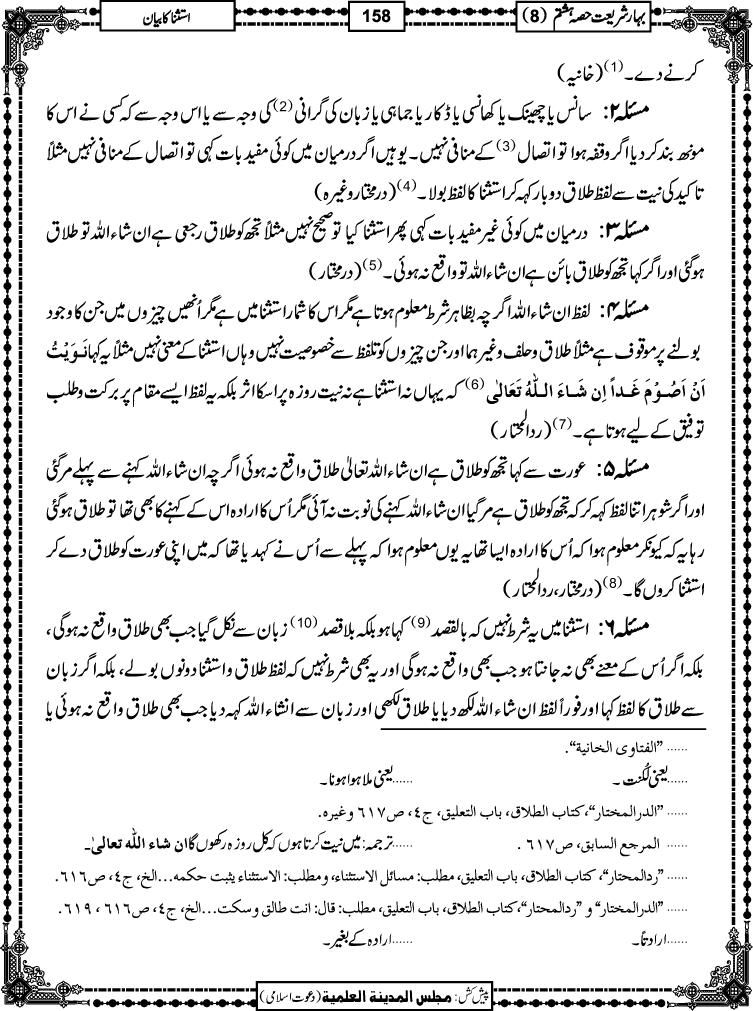 بہار شریعت حصہ ہشتم (8)
158
استثنا کا بیان
کرنے دے۔(1) (خانیہ)
مسئلہ ۲: سانس یا چھینک یا کھانسی یا ڈکار یا جماہی یا زبان کی گرانی(2) کی وجہ سے یا اس وجہ سے کہ کسی نے اس کا
مونھ بند کر دیا اگر وقفہ ہوا تو اتصال(3) کے منافی نہیں۔ یوہیں اگر درمیان میں کوئی مفید بات کہی تو اتصال کے منافی نہیں مثلاً
تاکید کی نیت سے لفظ طلاق دوبار کہہ کر استثنا کا لفظ بولا۔(4) (درمختار وغیرہ)
مسئلہ ۳: درمیان میں کوئی غیر مفید بات کہی پھر استثنا کیا تو صحیح نہیں مثلاً تجھ کو طلاق رجعی ہے ان شاء اللہ تو طلاق
ہوگئی اور اگر کہا تجھ کو طلاق بائن ہے ان شاء اللہ تو واقع نہ ہوئی۔(5) (درمختار)
مسئلہ ۴: لفظ ان شاء اللہ اگرچہ بظاہر شرط معلوم ہوتا ہے مگر اس کا شمار استثنا میں ہے مگر اُنھیں چیزوں میں جن کا وجود
بولنے پر موقوف ہے مثلاً طلاق وحلف وغیرہما اور جن چیزوں کو تلفظ سے خصوصیت نہیں وہاں استثنا کے معنی نہیں مثلاً یہ کہا نَوَیْتُ
اَنْ اَصُوْمَ غَداً اِن شَاءَ اللّٰہُ تَعَالٰی(6) کہ یہاں نہ استثنا ہے نہ نیت روزہ پر اسکا اثر بلکہ یہ لفظ ایسے مقام پر برکت و طلب
توفیق کے لیے ہوتا ہے۔(7) (ردالمحتار)
مسئلہ ۵: عورت سے کہا تجھ کو طلاق ہے ان شاء اللہ تعالیٰ طلاق واقع نہ ہوئی اگرچہ ان شاء اللہ کہنے سے پہلے مرگئی
اور اگر شوہر اتنا لفظ کہہ کر کہ تجھ کو طلاق ہے مرگیا ان شاء اللہ کہنے کی نوبت نہ آئی مگر اُس کا ارادہ اس کے کہنے کا بھی تھا تو طلاق ہوگئی
رہا یہ کہ کیونکر معلوم ہوا کہ اُس کا ارادہ ایسا تھا یہ یوں معلوم ہوا کہ پہلے سے اُس نے کہدیا تھا کہ میں اپنی عورت کو طلاق دے کر
استثنا کروں گا۔(8) (درمختار، ردالمحتار)
مسئلہ ۶: استثنا میں یہ شرط نہیں کہ بالقصد(9) کہا ہو بلکہ بلا قصد(10) زبان سے نکل گیا جب بھی طلاق واقع نہ ہوگی،
بلکہ اگر اُس کے معنے بھی نہ جانتا ہو جب بھی واقع نہ ہوگی اور یہ بھی شرط نہیں کہ لفظ طلاق و استثنا دونوں بولے، بلکہ اگر زبان
سے طلاق کا لفظ کہا اور فوراً لفظ ان شاء اللہ لکھ دیا یا طلاق لکھی اور زبان سے انشاء اللہ کہہ دیا جب بھی طلاق واقع نہ ہوئی یا
...... ”الفتاوی الخانیة“.
......یعنی لُکنت ۔ ......یعنی ملا ہوا ہونا۔
...... ”الدرالمختار“،کتاب الطلاق، باب التعلیق، ج٤، ص٦١٧ وغیرہ.
...... المرجع السابق، ص٦١٧ . ......ترجمہ: میں نیت کرتا ہوں کہ کل روزہ رکھوں گا ان شاء اللہ تعالیٰ۔
...... ”ردالمحتار“، کتاب الطلاق، باب التعلیق، مطلب: مسائل الاستثناء، ومطلب: الاستثناء یثبت حکمه...الخ، ج٤، ص٦١٦.
...... ”الدرالمختار“ و ”ردالمحتار“،کتاب الطلاق، باب التعلیق، مطلب: قال: انت طالق وسکت...الخ، ج٤، ص٦١٦ ، ٦١٩.
......ارادتاً۔ ......ارادہ کے بغیر۔
پیش کش: مجلس المدینة العلمیة (دعوت اسلامی)